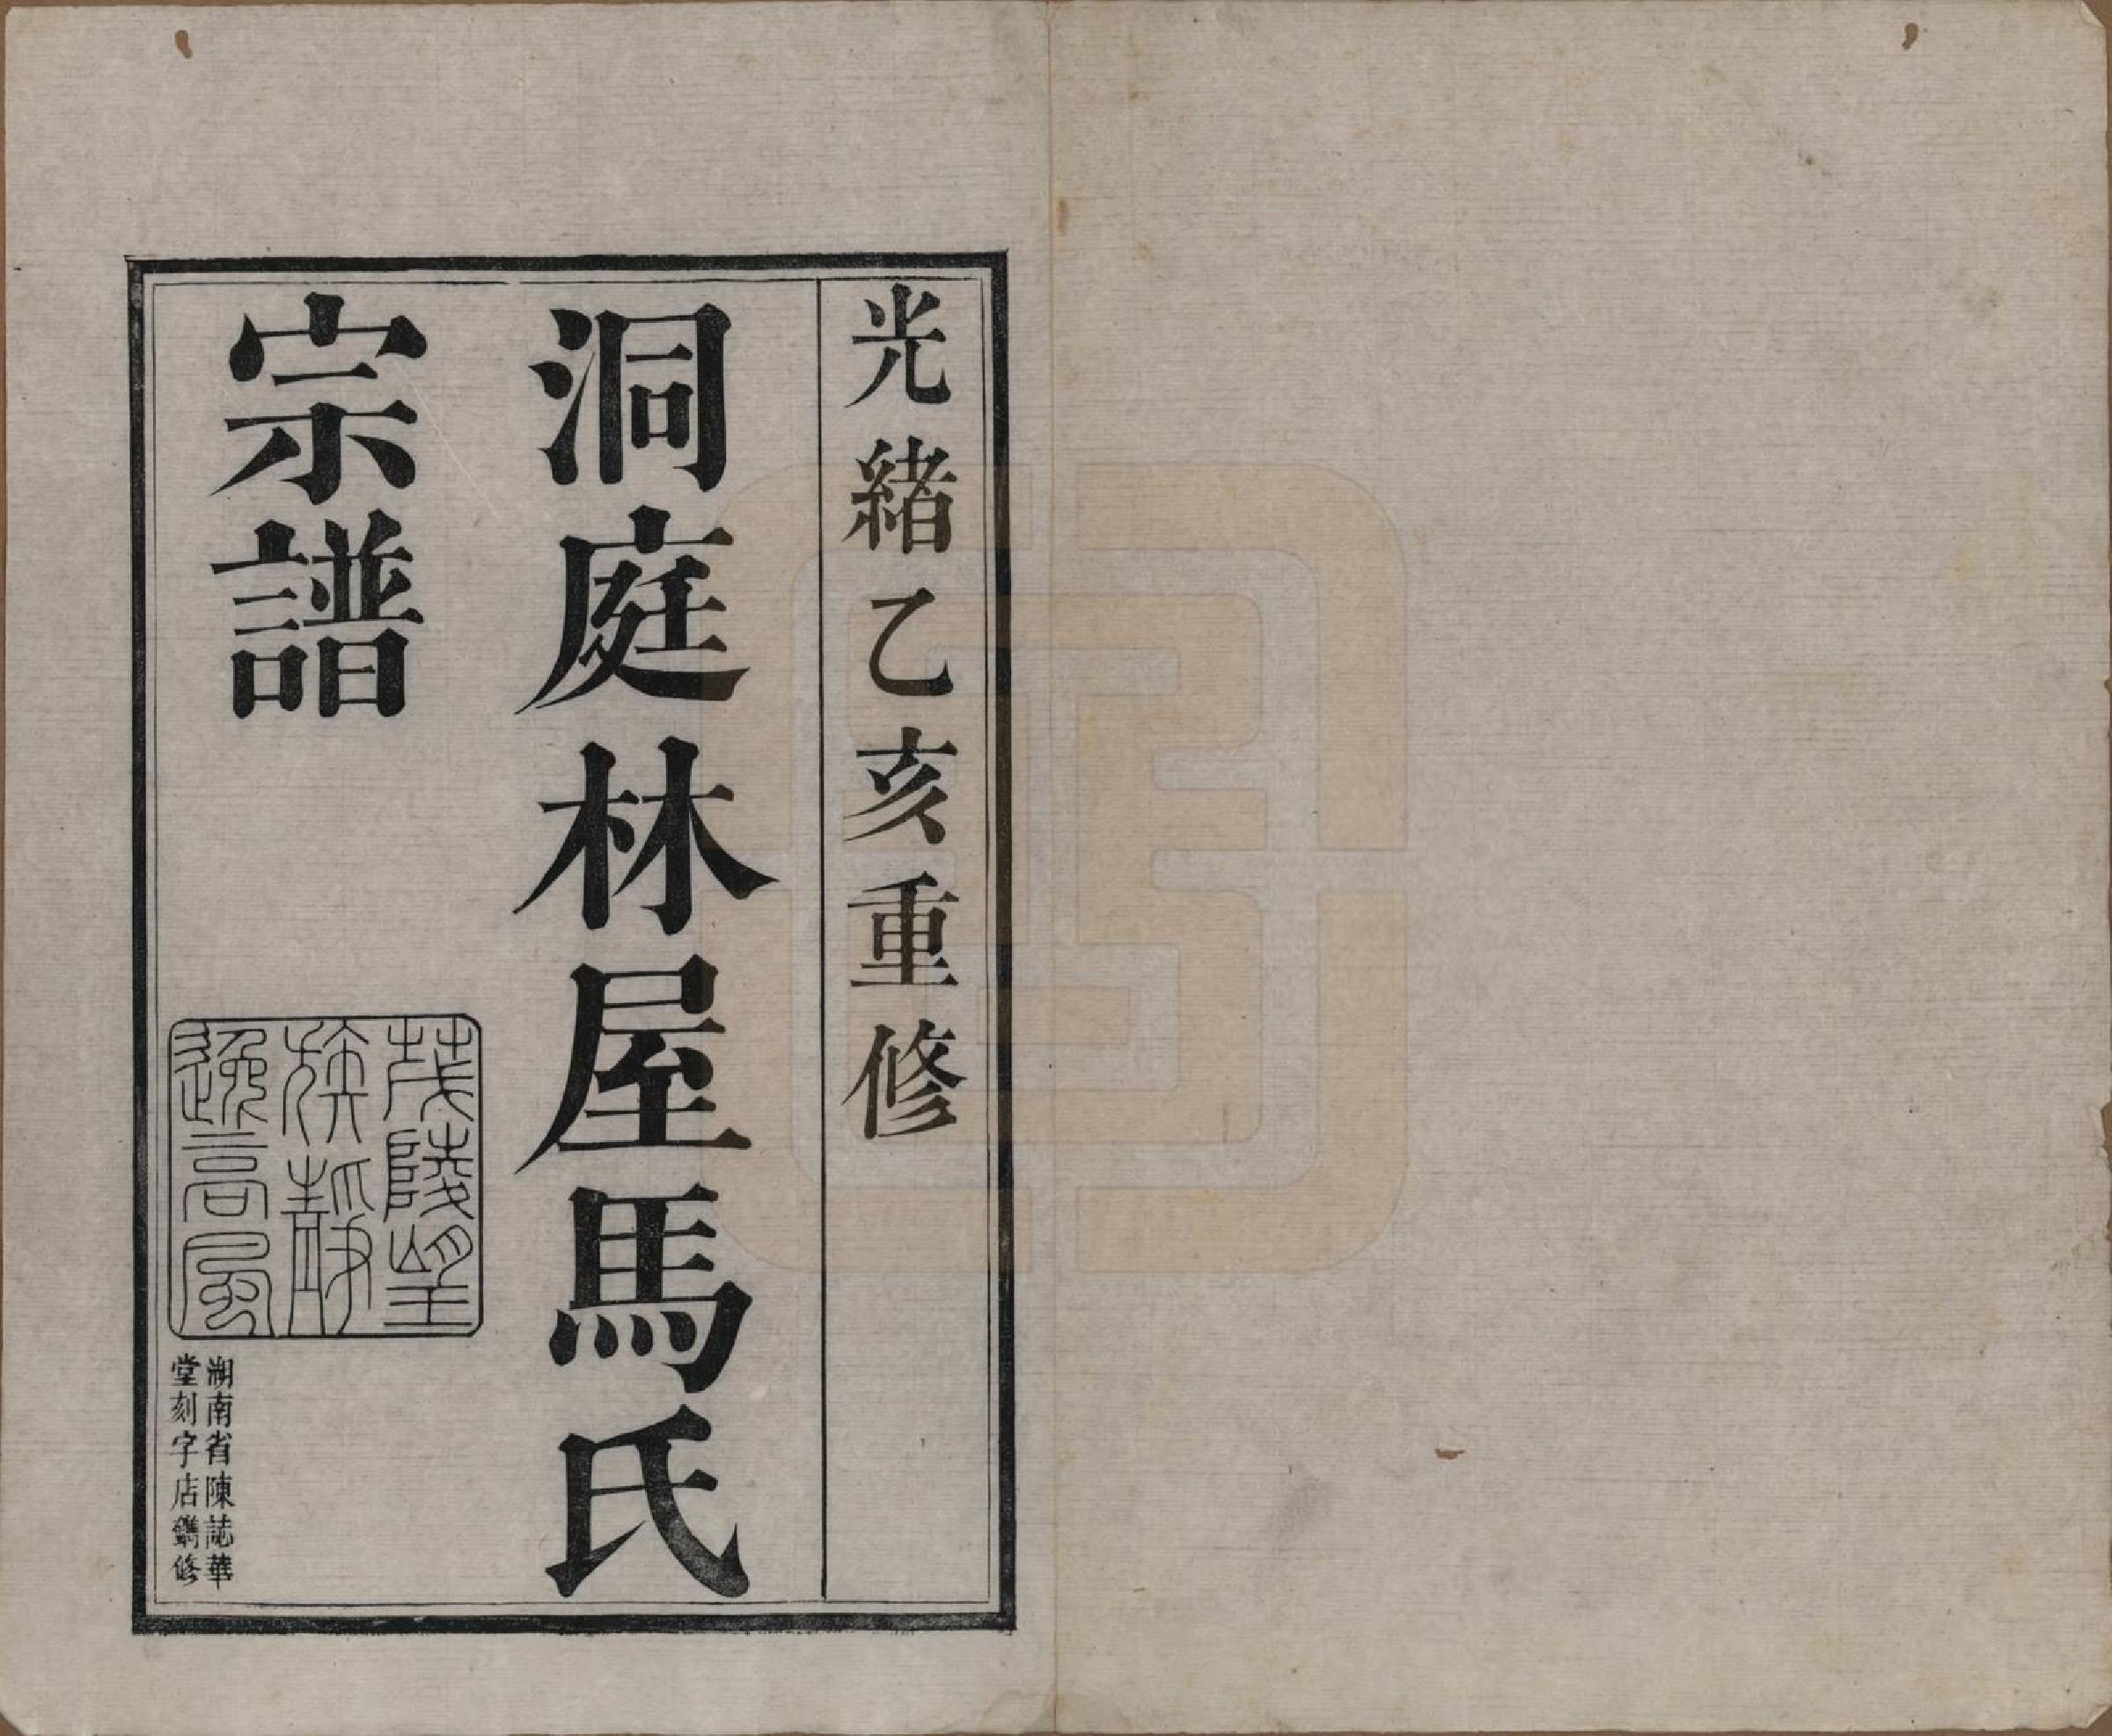 光緒乙亥重修
洞庭林屋馬氏
宗譜
茂陵望
族靜
逸高風
湖南省陳誌華
堂刻字店鐫修